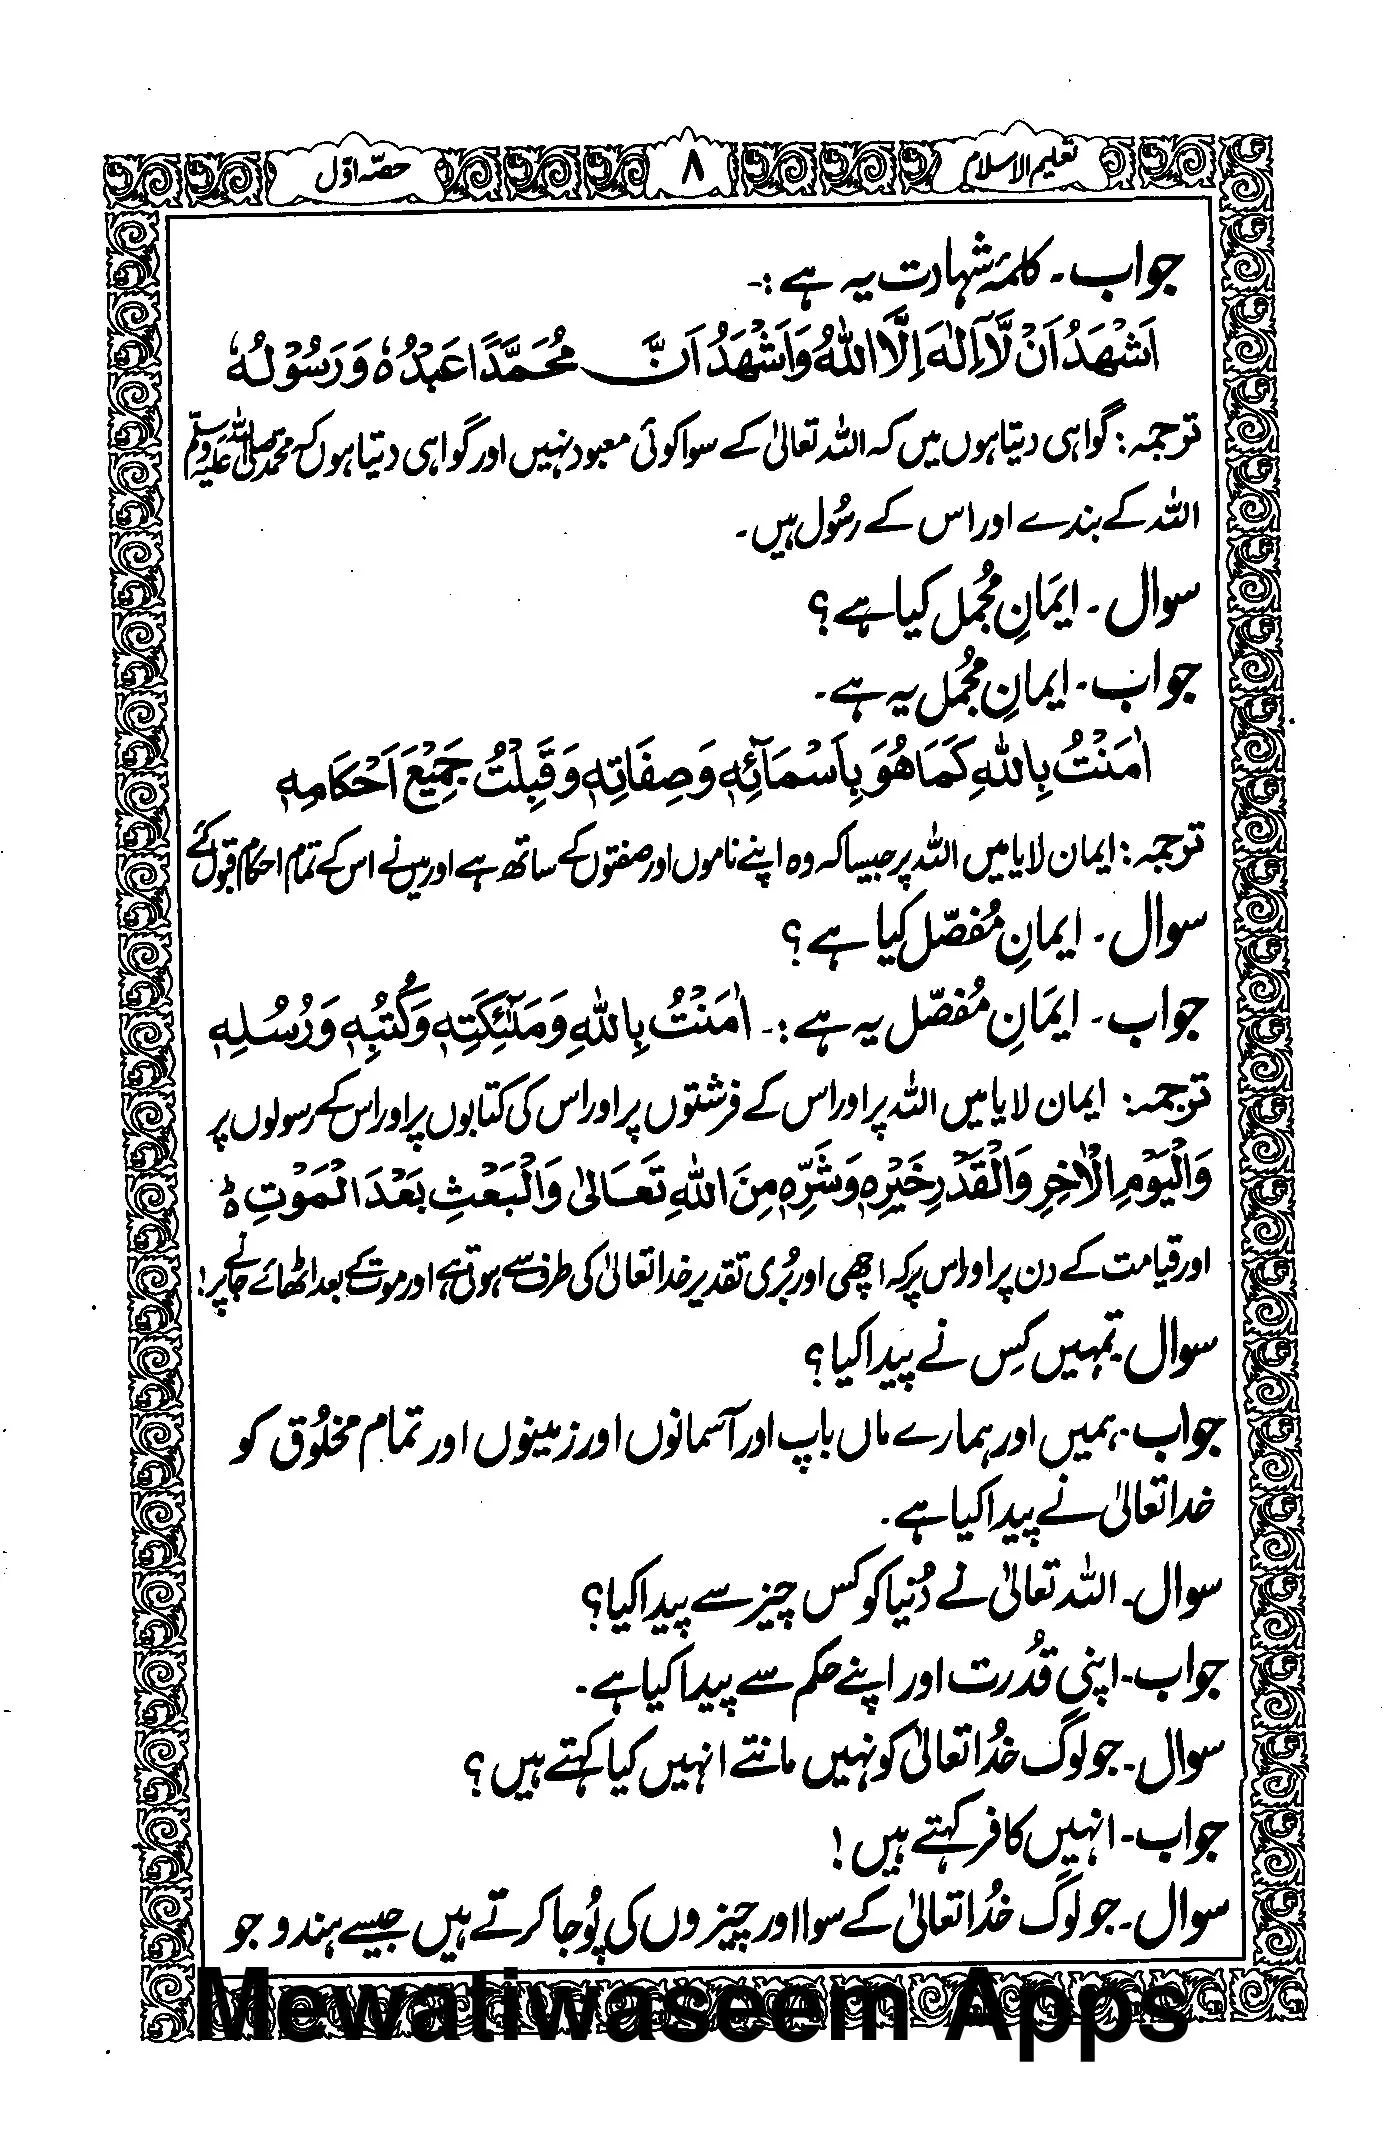 تعلیم الاسلام ۸ حصّہ اوّل
جواب۔ کلمۂ شہادت یہ ہے :۔
اَشْهَدُ اَنْ لَّاۤ اِلٰهَ اِلَّا اللهُ وَاَشْهَدُ اَنَّ مُحَمَّدًا عَبْدُهٗ وَرَسُوْلُهٗ
ترجمہ: گواہی دیتا ہوں میں کہ اللہ تعالیٰ کے سوا کوئی معبود نہیں اور گواہی دیتا ہوں کہ محمد صلی اللہ علیہ وسلم
اللہ کے بندے اور اس کے رسُول ہیں۔
سوال۔ ایمَانِ مُجمل کیا ہے؟
جواب۔ ایمانِ مُجمل یہ ہے۔
اٰمَنْتُ بِاللهِ كَمَا هُوَ بِاَسْمَآئِهٖ وَصِفَاتِهٖ وَقَبِلْتُ جَمِيْعَ اَحْكَامِهٖ
ترجمہ: ایمان لایا میں اللہ پر جیسا کہ وہ اپنے ناموں اور صفتوں کے ساتھ ہے اور میں نے اس کے تمام احکام قبول کئے
سوال۔ ایمانِ مُفصّل کیا ہے؟
جواب۔ ایمَانِ مُفصّل یہ ہے :۔ اٰمَنْتُ بِاللهِ وَمَلٰٓئِكَتِهٖ وَكُتُبِهٖ وَرُسُلِهٖ
ترجمہ: ایمان لایا میں اللہ پر اور اس کے فرشتوں پر اور اس کی کتابوں پر اور اس کے رسولوں پر
وَالْيَوْمِ الْاٰخِرِ وَالْقَدْرِ خَيْرِهٖ وَشَرِّهٖ مِنَ اللهِ تَعَالٰى وَالْبَعْثِ بَعْدَ الْمَوْتِ ؕ
اور قیامت کے دن پر اور اس پر کہ اچھی اور بُری تقدیر خدا تعالیٰ کی طرف سے ہوتی ہے اور موت کے بعد اٹھائے جانے پر!
سوال۔ تمہیں کِس نے پیدا کیا؟
جواب۔ ہمیں اور ہمارے ماں باپ اور آسمانوں اور زمینوں اور تمام مخلُوق کو
خدا تعالیٰ نے پیدا کیا ہے۔
سوال۔ اللہ تعالیٰ نے دُنیا کو کس چیز سے پیدا کیا؟
جواب۔ اپنی قُدرت اور اپنے حکم سے پیدا کیا ہے۔
سوال۔ جو لوگ خُدا تعالیٰ کو نہیں مانتے انہیں کیا کہتے ہیں؟
جواب۔ انہیں کافر کہتے ہیں!
سوال۔ جو لوگ خُدا تعالیٰ کے سوا اور چیزوں کی پُوجا کرتے ہیں جیسے ہندو جو
Mewatiwaseem Apps